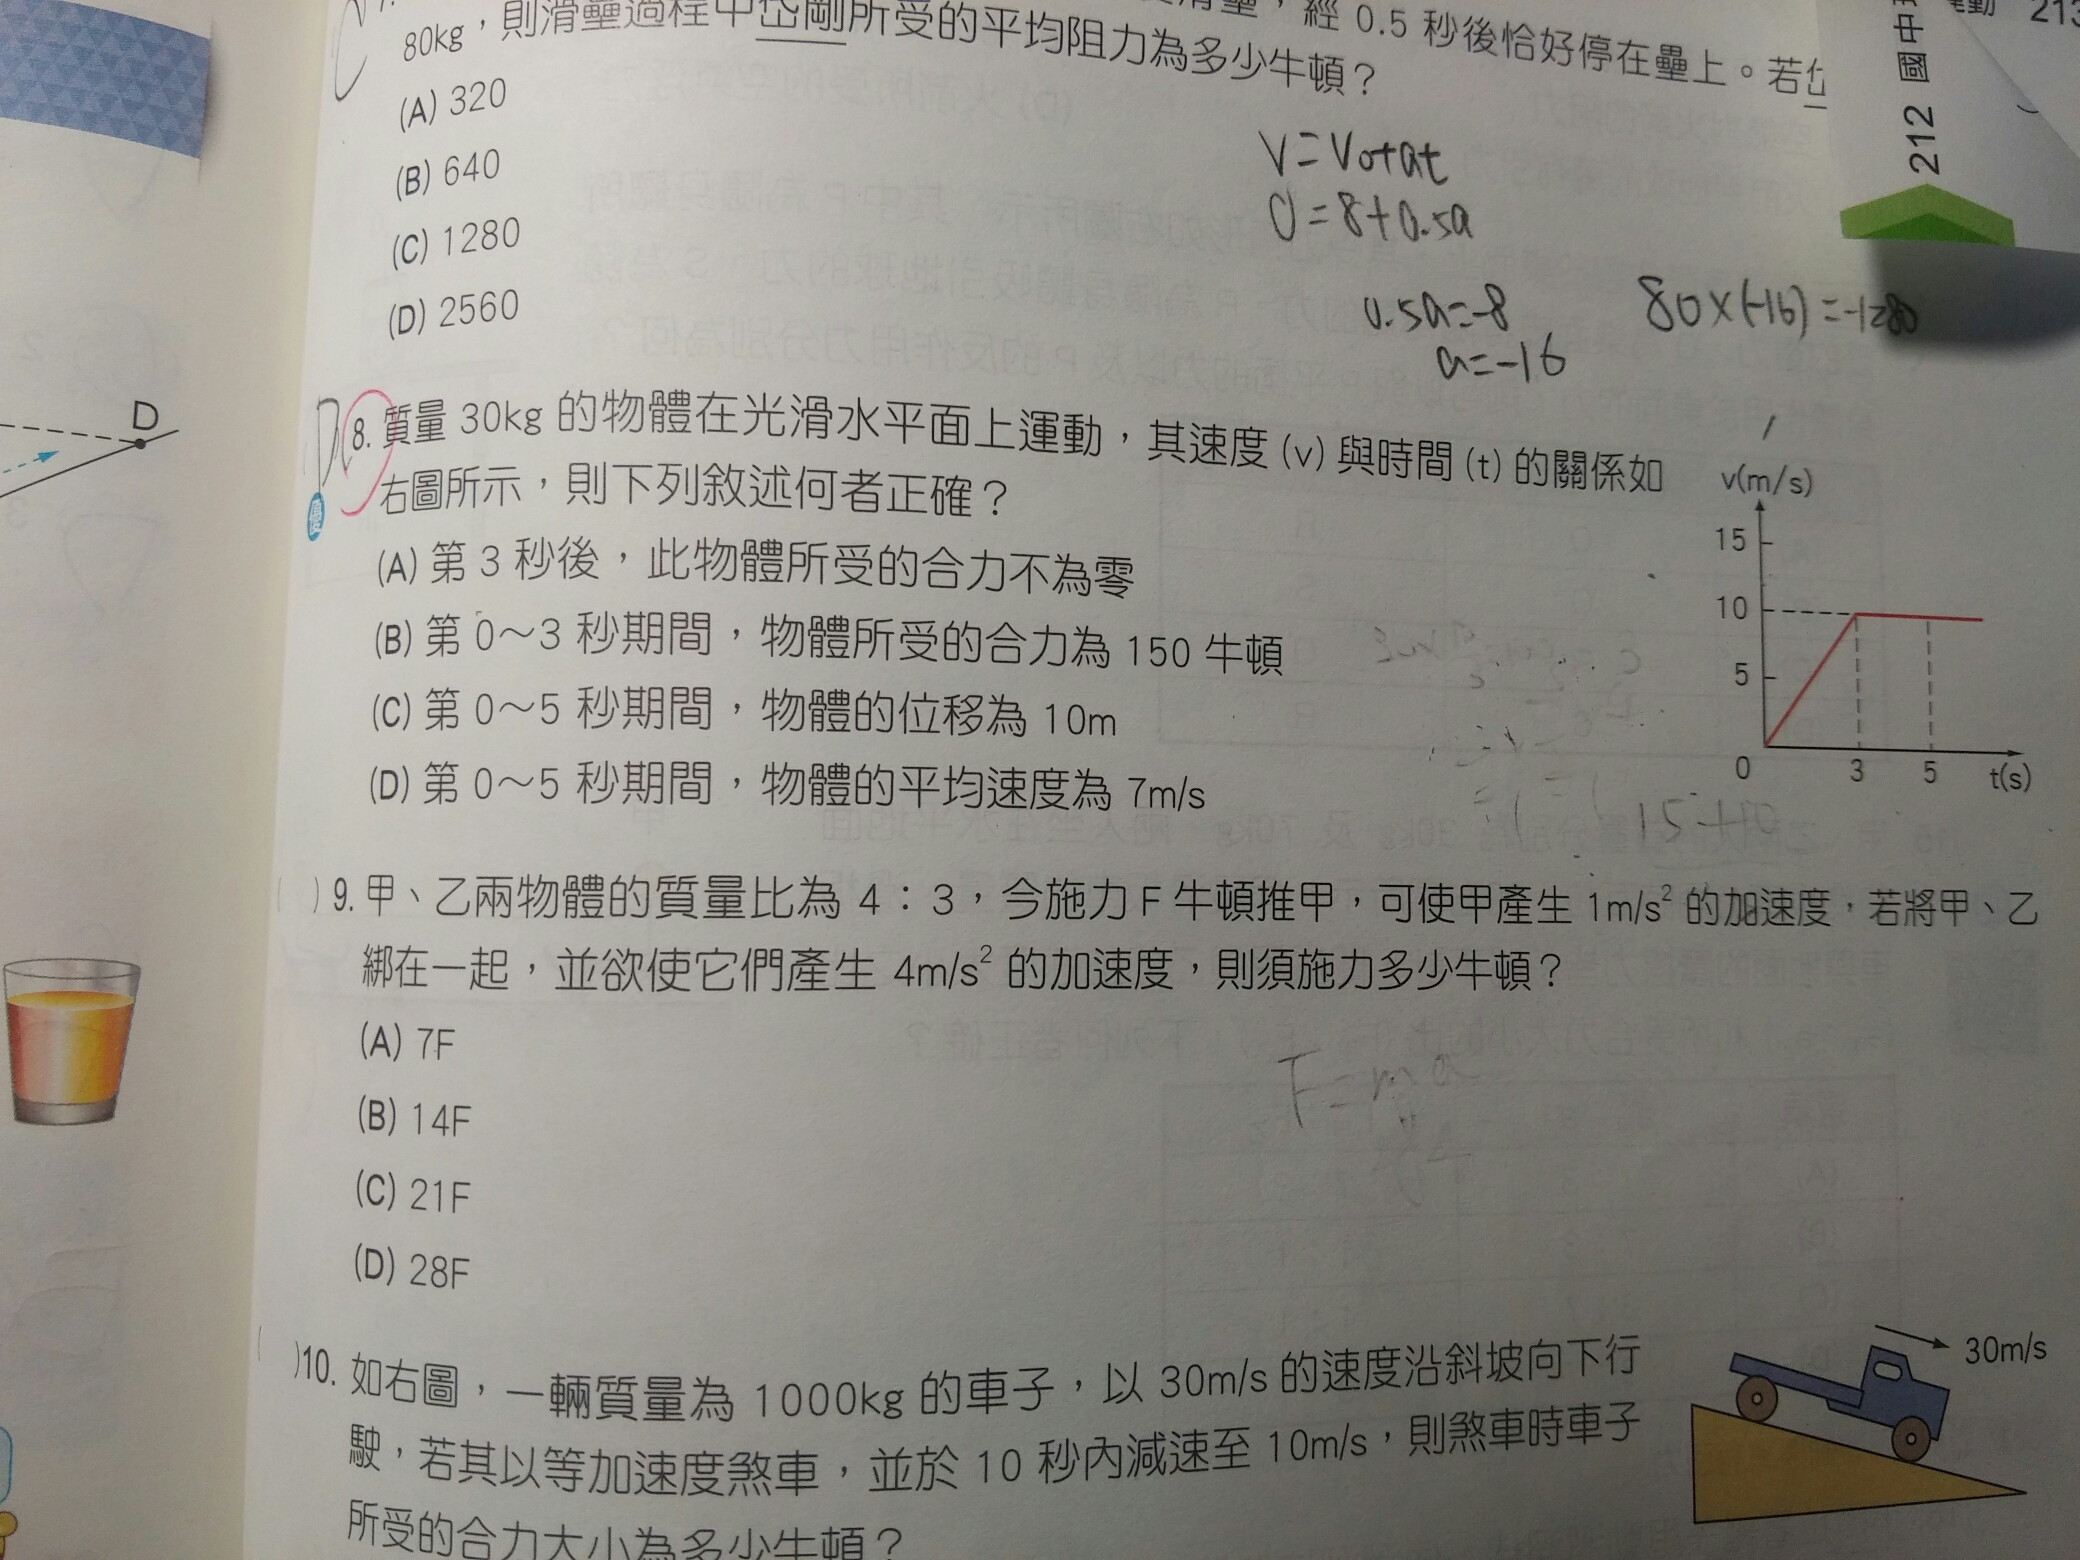 滑壘，經 0.5 秒後恰好停在壘上。若岱
80kg，則滑壘過程中岱剛所受的平均阻力為多少牛頓？
(A) 320
(B) 640
(C) 1280
(D) 2560
V=V0+at
0=8+0.5a
0.5a=-8
a=-16
80×(-16)=-1280
212 國中
213
D
D
8. 質量 30kg 的物體在光滑水平面上運動，其速度 (v) 與時間 (t) 的關係如
右圖所示，則下列敘述何者正確？
優
(A) 第 3 秒後，此物體所受的合力不為零
(B) 第 0～3 秒期間，物體所受的合力為 150 牛頓
(C) 第 0～5 秒期間，物體的位移為 10m
(D) 第 0～5 秒期間，物體的平均速度為 7m/s
v(m/s)
15
10
5
0 3 5 t(s)
( ) 9. 甲、乙兩物體的質量比為 4：3，今施力 F 牛頓推甲，可使甲產生 1m/s² 的加速度，若將甲、乙
綁在一起，並欲使它們產生 4m/s² 的加速度，則須施力多少牛頓？
(A) 7F
(B) 14F
(C) 21F
(D) 28F
F=ma
( )10. 如右圖，一輛質量為 1000kg 的車子，以 30m/s 的速度沿斜坡向下行
駛，若其以等加速度煞車，並於 10 秒內減速至 10m/s，則煞車時車子
所受的合力大小為多少牛頓？
30m/s